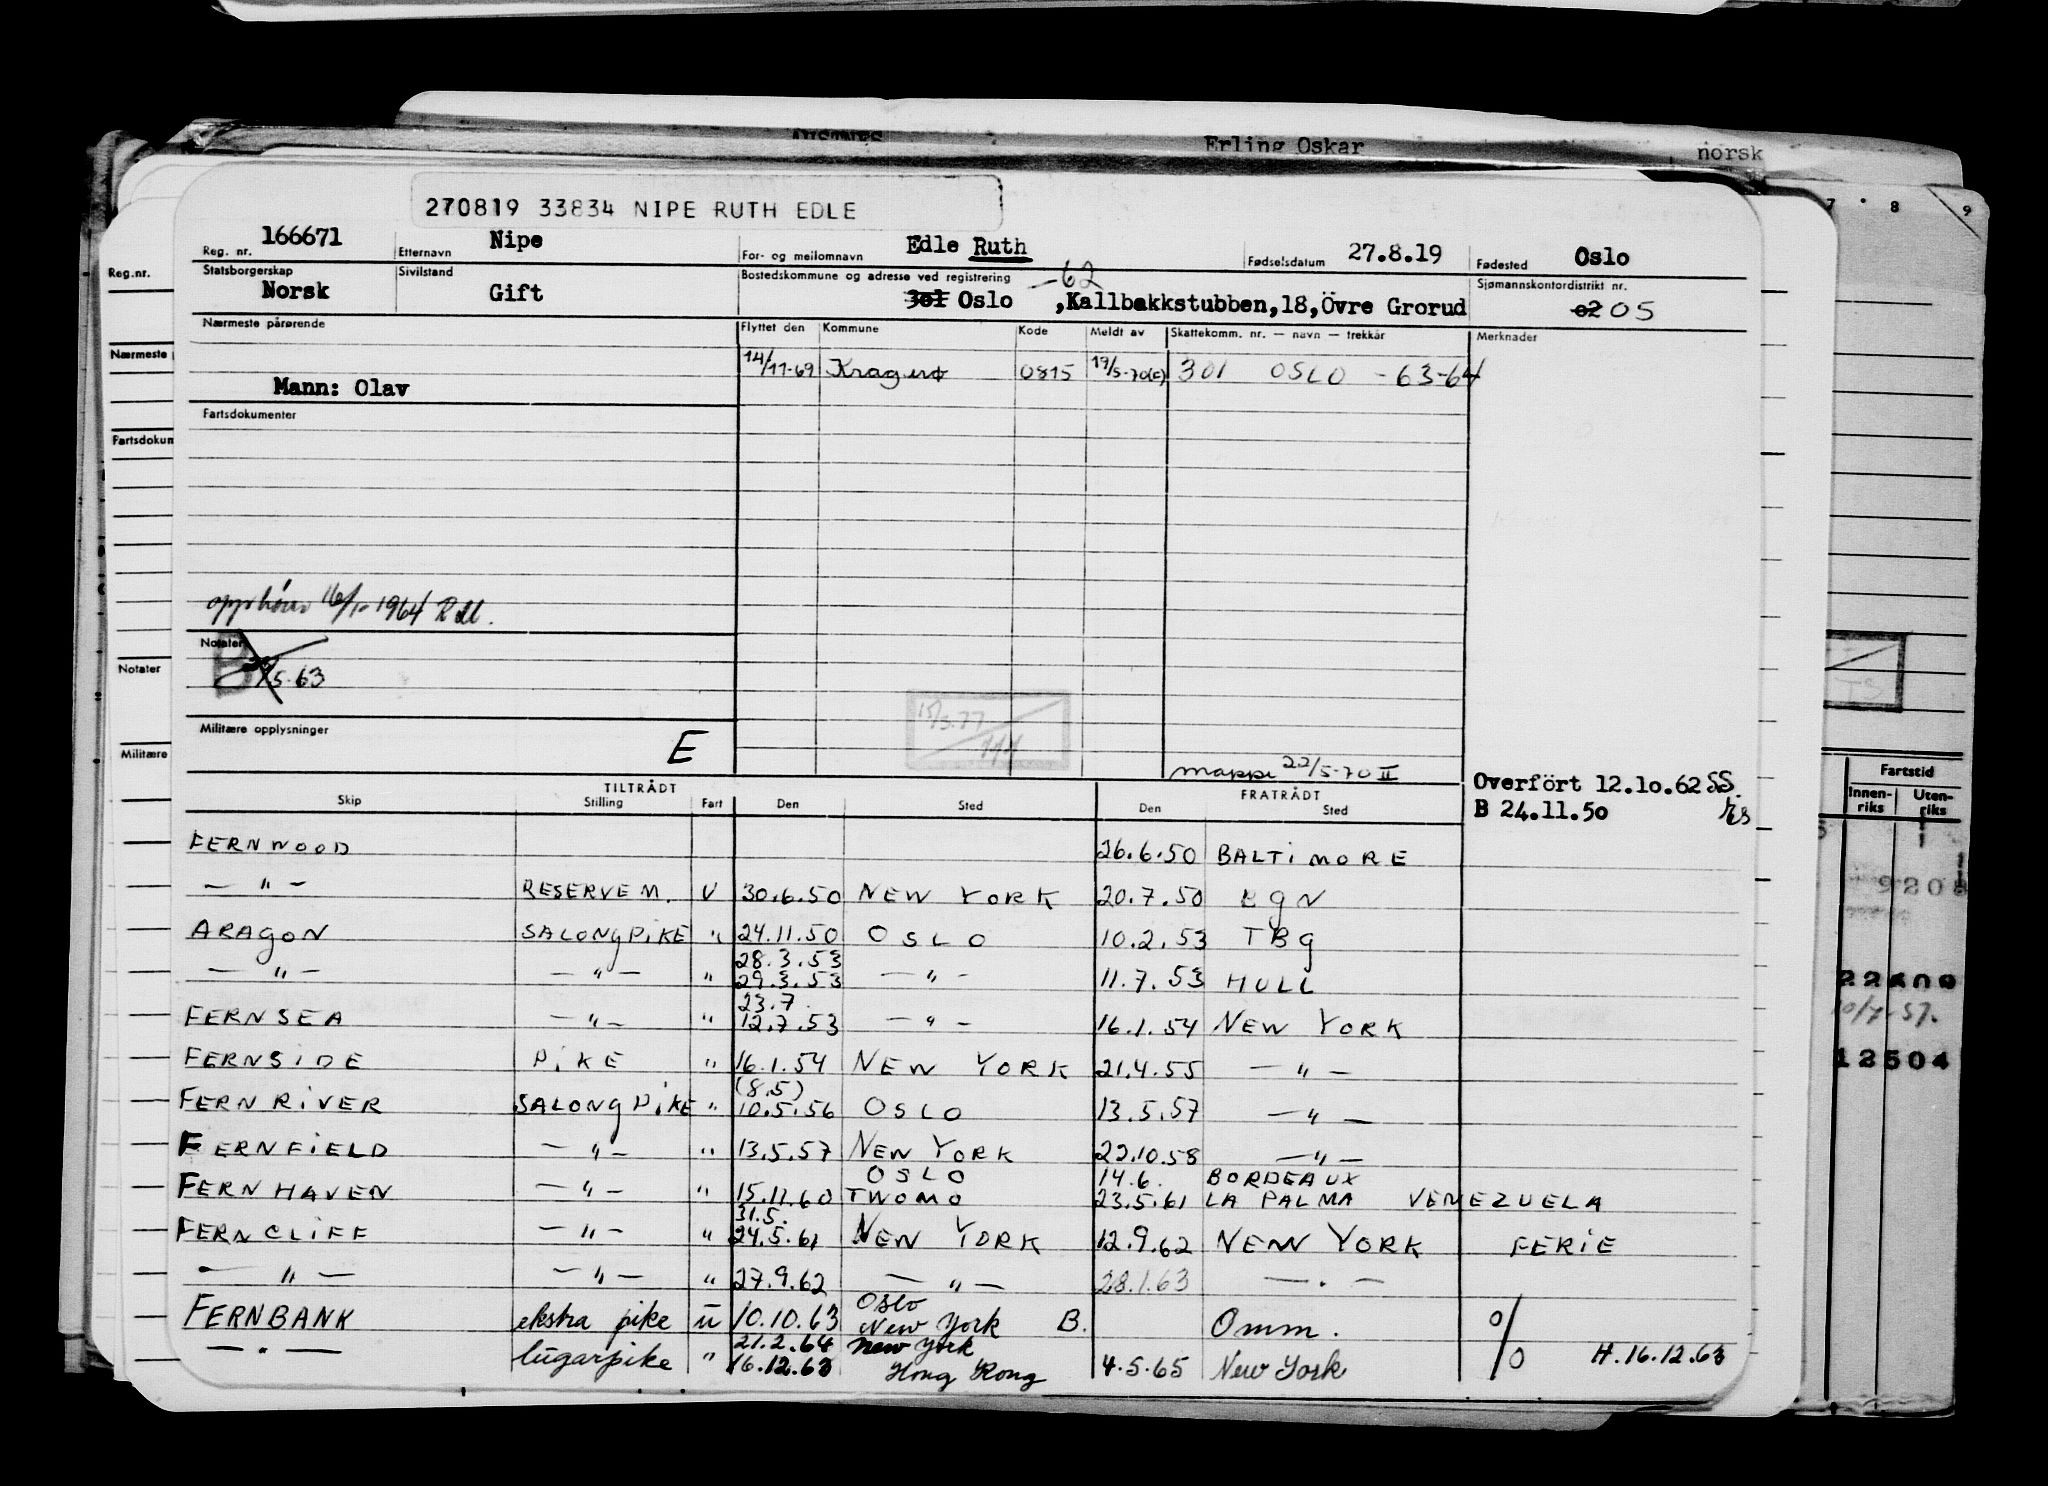 AUSTNES Erling Oskar norsk
7 8 9
270819 33834 NIPE RUTH EDLE
Reg. nr. 166671 Etternavn Nipe For- og mellomnavn Edle Ruth Fødselsdatum 27.8.19 Fødested Oslo
Statsborgerskap Norsk Sivilstand Gift Bostedskommune og adresse ved registrering 301 Oslo -62 ,Kallbakkstubben,18,Övre Grorud Sjømannskontordistrikt nr. 02 05
Nærmeste pårørende Flyttet den Kommune Kode Meldt av Skattekomm. nr. — navn — trekkår Merknader
14/11-69 Kragerø 0815 19/5-70(c) 301 OSLO - 63-64
Mann: Olav
Fartsdokumenter
opphører 16/10 1964
Notater
B 5.63
15/3.77
Militære opplysninger E
mappe 22/5-70 II
Overfört 12.10.62 SS.
B 24.11.50
TILTRÅDT FRATRÅDT
Skip Stilling Fart Den Sted Den Sted
FERNWOOD 26.6.50 BALTIMORE
— " — RESERVEM. U 30.6.50 NEW YORK 20.7.50 BGN
ARAGON SALONGPIKE " 24.11.50 OSLO 10.2.53 TBG
28.3.53
— " — — " — " 29.3.53 — " — 11.7.53 HULL
23.7.
FERNSEA — " — " 12.7.53 — " — 16.1.54 NEW YORK
FERNSIDE PIKE " 16.1.54 NEW YORK 21.4.55 — " —
(8.5)
FERNRIVER SALONGPIKE " 10.5.56 OSLO 13.5.57 — " —
FERNFIELD — " — " 13.5.57 NEW YORK 22.10.58 — " —
OSLO 14.6. BORDEAUX
FERNHAVEN — " — " 15.11.60 TWOMO 23.5.61 LA PALMA VENEZUELA
31.5.
FERNCLIFF — " — " 24.5.61 NEW YORK 12.9.62 NEW YORK FERIE
— " — — " — " 27.9.62 — " — 28.1.63 — " —
Oslo
FERNBANK ekstra pike u 10.10.63 New York B. Omm. %
21.2.64 New York
— " — lugarpike " 16.12.63 Hong Kong 4.5.65 New York H.16.12.63
Reg.nr.
Nærmeste
Fartsdokum
Notater
Militære
Fartstid
Innenriks Utenriks
9208
22600
10/7-57.
12504